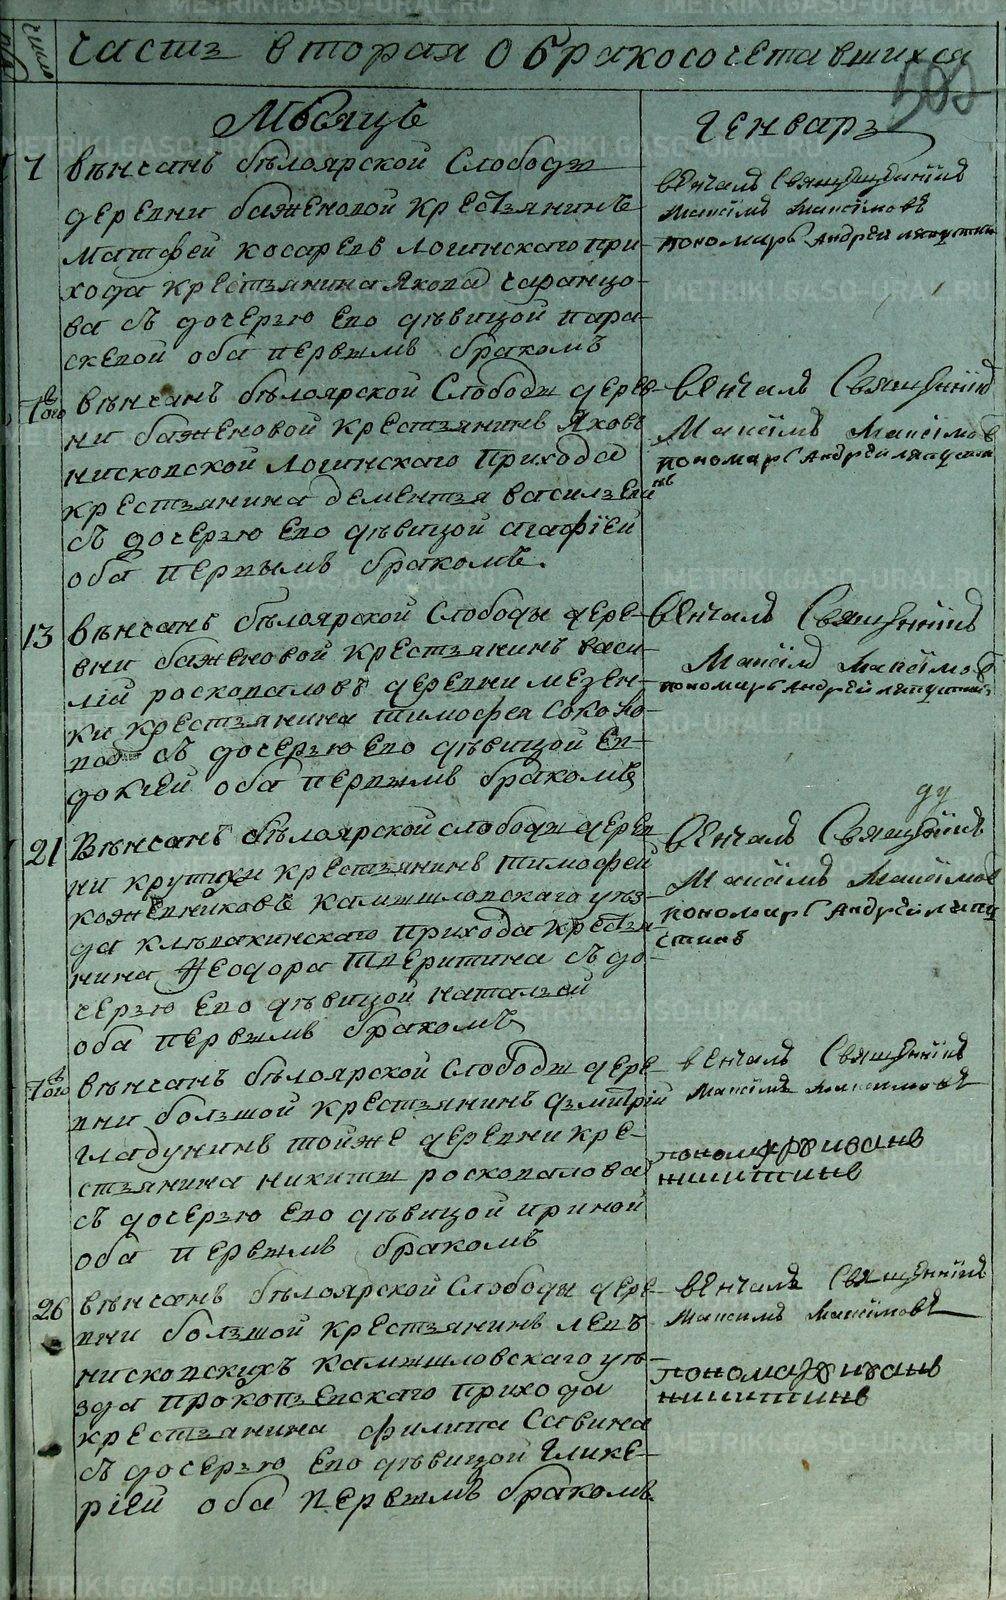 METRIKI.GASO-URAL.RU
METRIKI.GASO-URAL.RU
число
часть вторая о бракосочетавшихся
Мѣсяцъ
генварь
7 вѣнчанъ бѣлоярской Слободы
деревни баженовой крестьянинъ
матфей косаревъ логинскаго при-
хода крестьянина якова чаранцо-
ва съ дочерью ево дѣвицой пара-
скевой оба первымъ бракомъ
венчалъ Священникъ
максимъ максімовъ
пономарь андрей ляпустин
7го вѣнчанъ бѣлоярской Слободы дерев-
ни баженовой крестьянинъ яковъ
нисковской логинскаго прихода
крестьянина дементья васильева
съ дочерью ево дѣвицой агафіей
оба первымъ бракомъ.
венчалъ Священникъ
Максімъ Максімов
пономарь андрей ляпустин
13 вѣнчанъ бѣлоярской Слободы дере-
вни баженовой крестьянинъ васи-
лій росковаловъ деревни мезен-
ки крестьянина тимофея соколо-
ва съ дочерью ево дѣвицой ев-
докіей оба первымъ бракомъ
венчалъ Священникъ
Максімъ Максімовъ
пономарь андрей ляпустинъ
21 Вѣнчанъ бѣлоярской слободы дерев
ни крутихи крестьянинъ тимофей
кожевниковъ камышловскаго уѣз-
да клевакинскаго прихода крестья-
нина Феодора тверитина съ до-
черью ево дѣвицой натальей
оба первымъ бракомъ
венчалъ Священникъ
Максімъ Максімовъ
пономарь андрей ляпу
стинъ
7го вѣнчанъ бѣлоярской Слободы дере-
вни большой крестьянинъ дмитрій
гладунинъ тойже деревни кре-
стьянина никиты росковалова
съ дочерью ево дѣвицой ириной
оба первымъ бракомъ
венчалъ Священникъ
Максімъ Максимовъ
пономарь иванъ
никитинъ
26 вѣнчанъ бѣлоярской Слободы дере-
вни большой крестьянинъ левъ
нисковскихъ камышловскаго уѣ-
зда прокопьевскаго прихода
крестьянина филипа Савина
съ дочерью ево дѣвицой глике-
ріей оба первымъ бракомъ
венчалъ Священникъ
Максимъ Максімовъ
пономарь иванъ
никитинъ
METRIKI.GASO-URAL.RU
METRIKI.GASO-URAL.RU